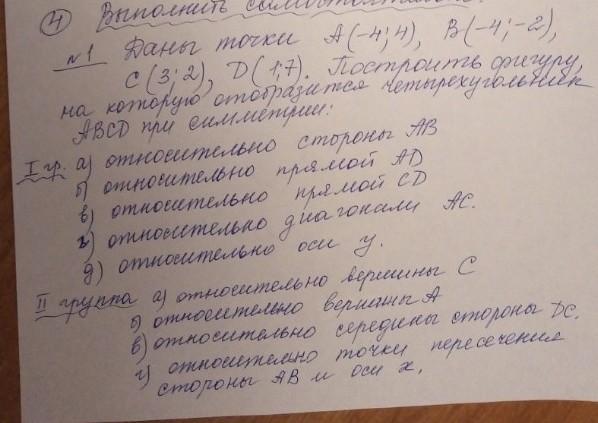 ④ Выполнить самостоятельно:
№1 Даны точки A(-4; 4), B(-4; -2),
C(3; 2), D(1; 7). Построить фигуру,
на которую отобразится четырехугольник
ABCD при симметрии:
I гр. а) относительно стороны AB
б) относительно прямой AD
в) относительно прямой CD
г) относительно диагонали AC.
д) относительно оси y.
II группа а) относительно вершины C
б) относительно вершины A
в) относительно середины стороны DC.
г) относительно точки пересечения
стороны AB и оси x.